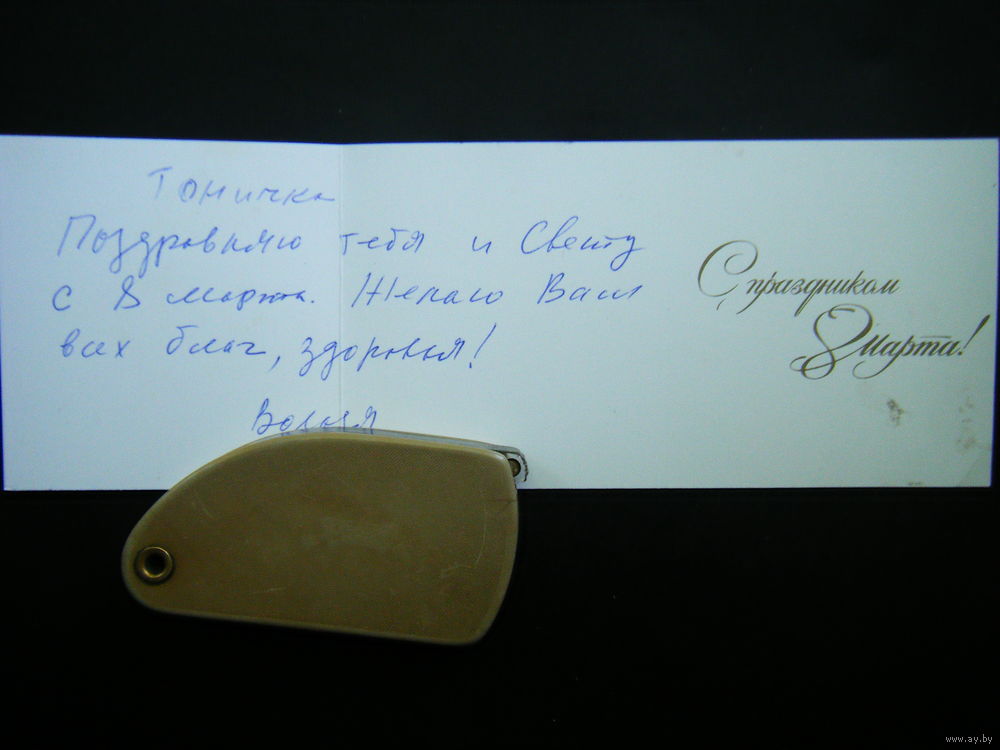 Тоничка
Поздравляю тебя и Свету
с 8 марта. Желаю Вам
всех благ, здоровья!
Володя
С праздником
8 Марта!
www.ay.by